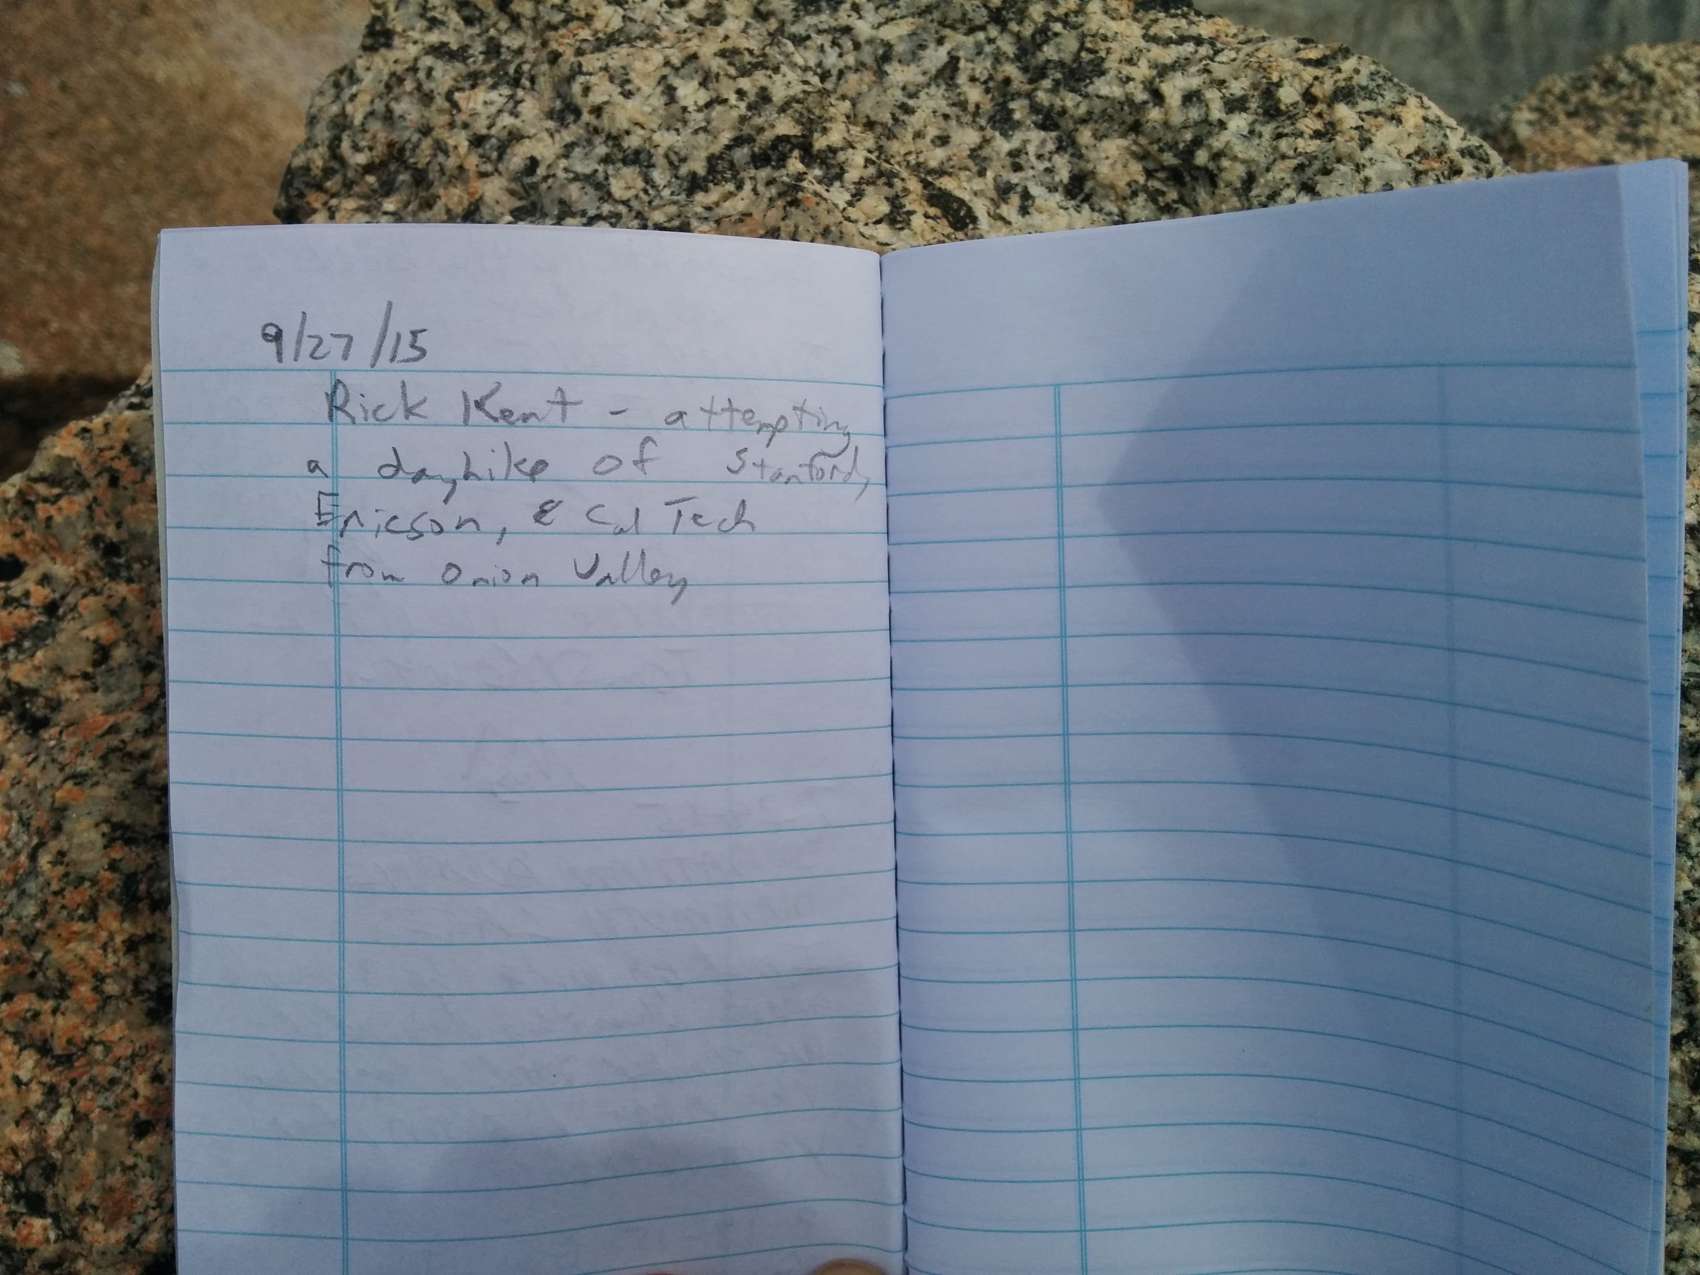 9/27/15
Rick Kent - attempting
a dayhike of Stanford,
Ericson, & Cal Tech
from Onion Valley